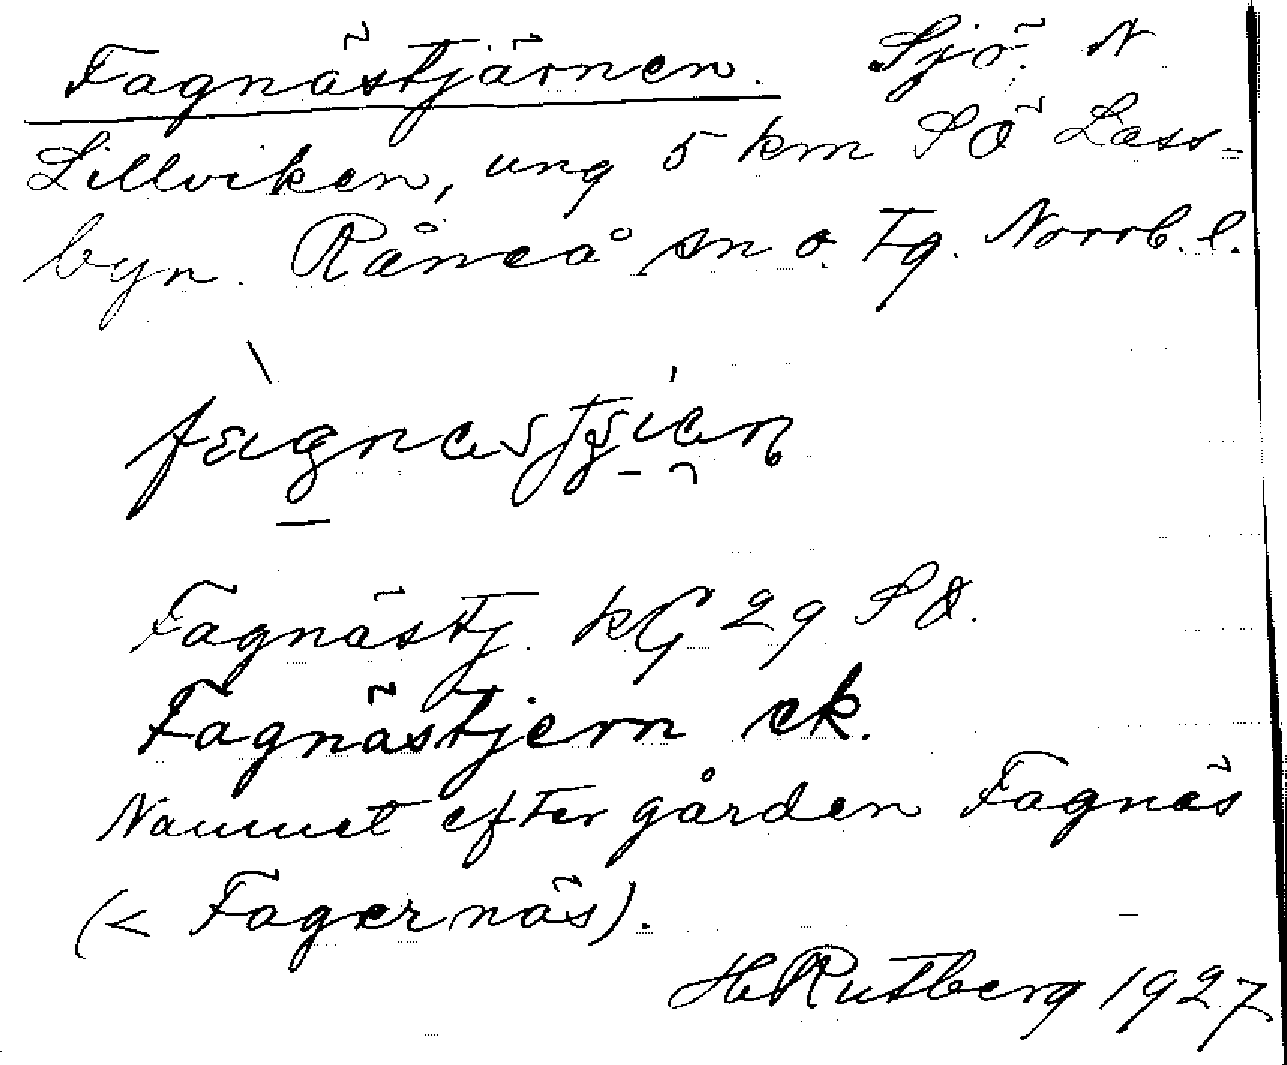 Fagnästjärnen. Sjö. N
Lillviken, ung 5 km SÖ Lass-
byn. Råneå sn o. tg. Norrb. l.
Fagnästj. kG 29 SO.
Fagnästjern ek.
Namnet efter gården Fagnäs
(< Fagernäs).
H Rutberg 1927